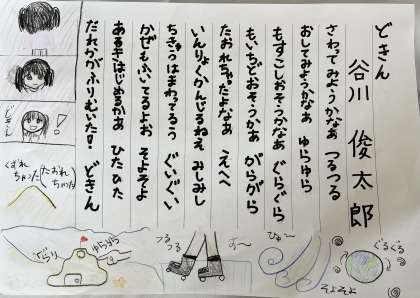 どきん
谷川 俊太郎
さわってみようかなあ つるつる
おしてみようかなあ ゆらゆら
もすこしおそうかなあ ぐらぐら
もいちどおそうかあ がらがら
たおれちゃったよなあ えへへ
いんりょくかんじるねえ みしみし
ちきゅうはまわってるう ぐいぐい
かぜもふいてるよお そよそよ
あるきはじめるかあ ひたひた
だれかがふりむいた! どきん
!
くずれちゃった
(たおれちゃった)
ぐらり
ゆらゆら
つるつる
すー
ひゅー
ぐるぐる
そよそよ